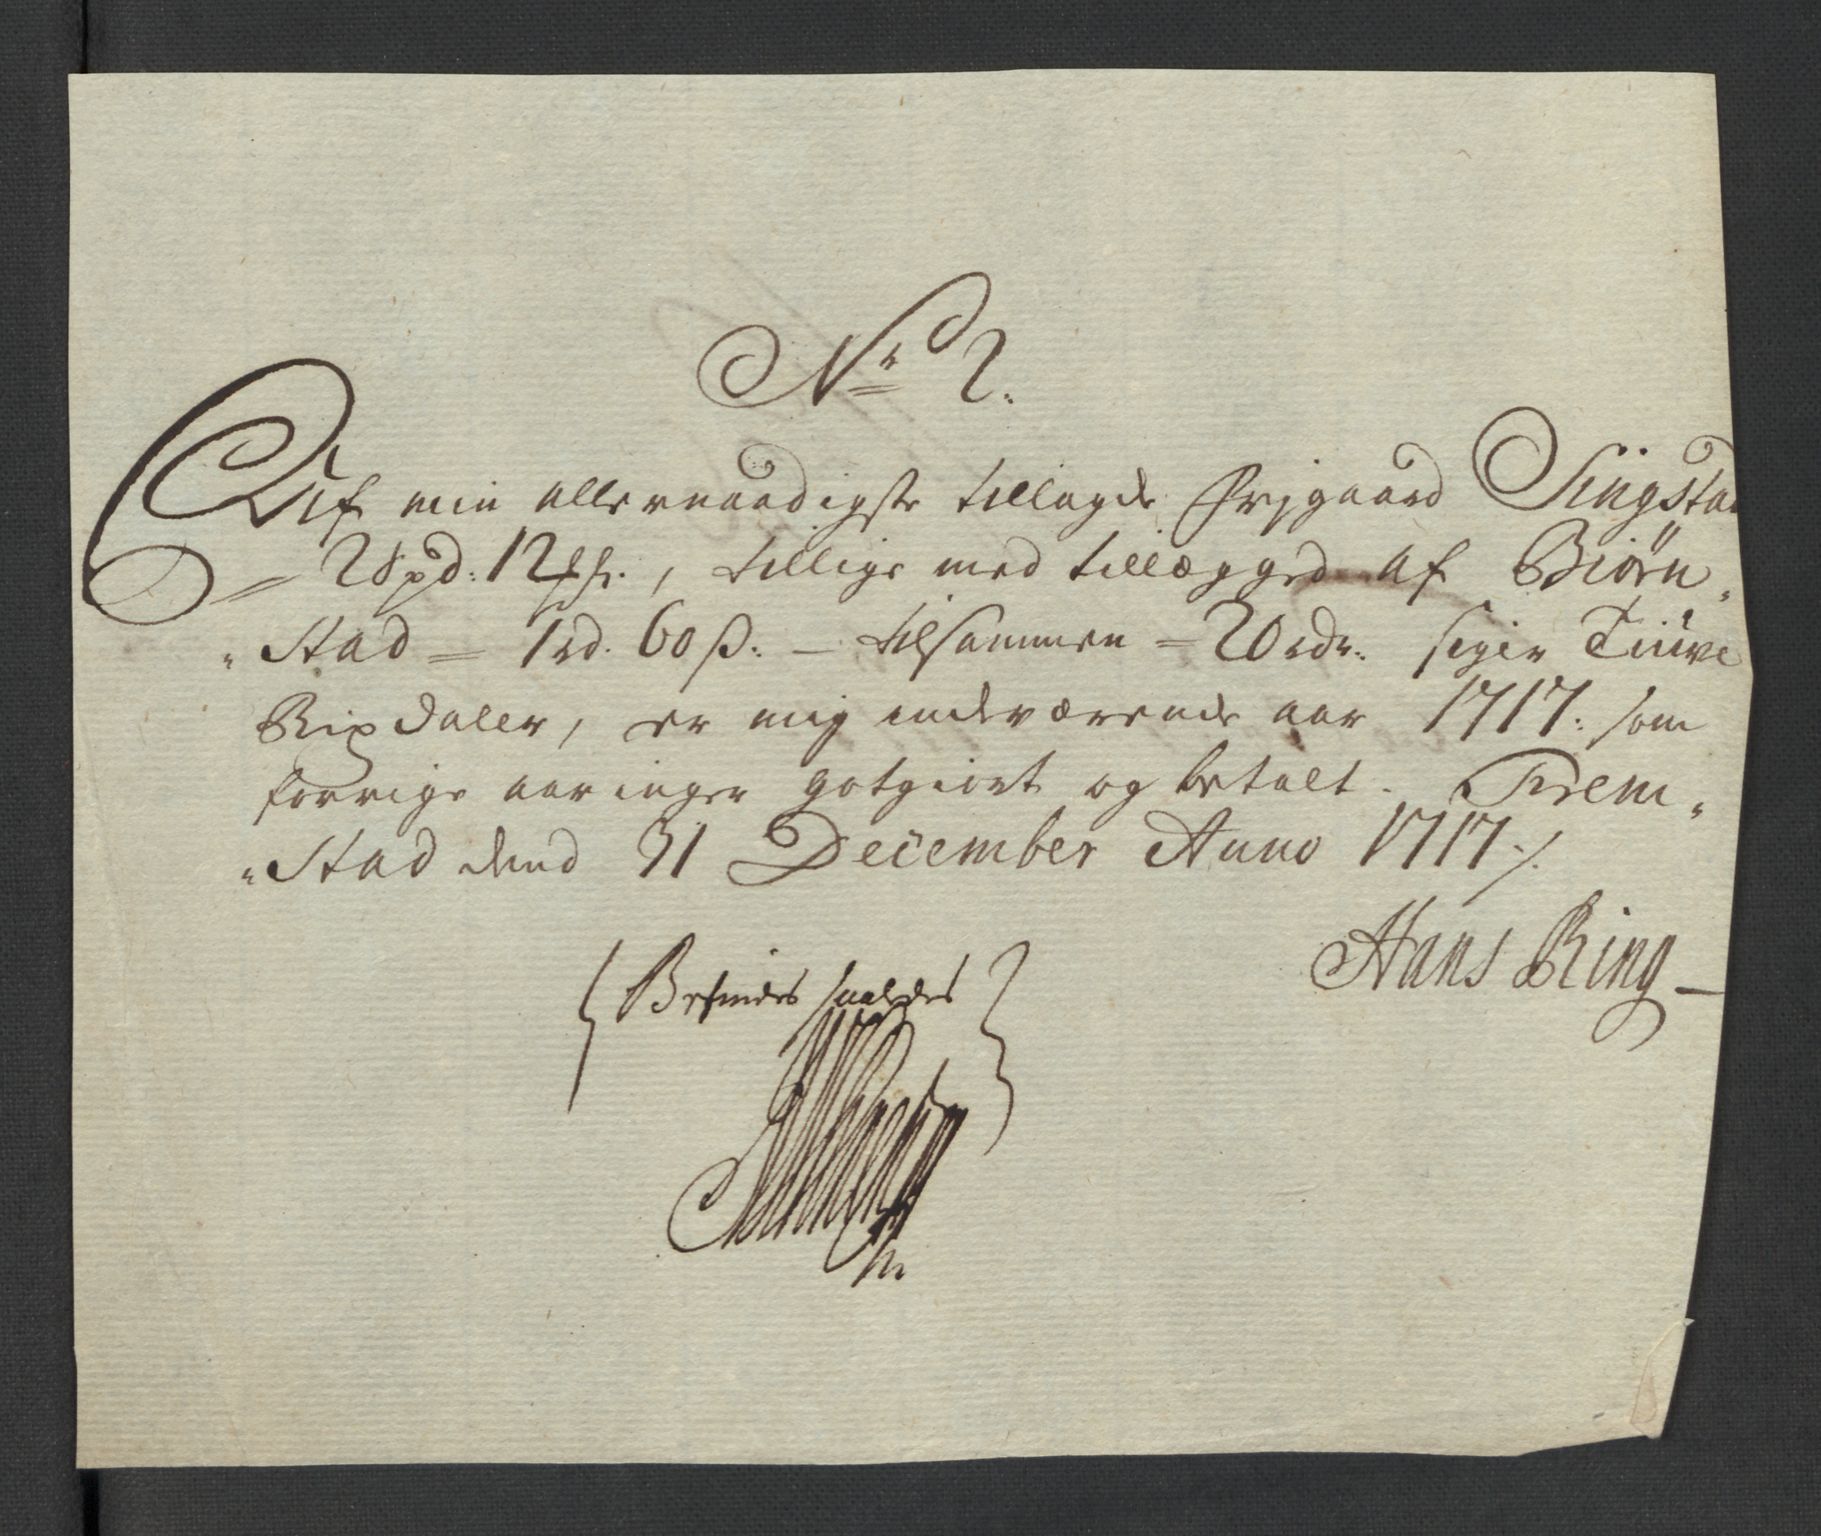 No 2.
Aff min allernaadigste tillagde Frjgaard Singstad
= 2 Spd: 12 sh:, tillige med tillægged af Biørn„
„Stad = 1 rd. 60 ß. — tilsammen = 20 rdr. siger Tiüve
Rixdaler, er mig indeværende aar 1717. som
forrige aaringer gotgiort og betalt. Trem„
„Stad dend 31 December Anno 1717 ./.
Hans Ring
Befindes saaledes